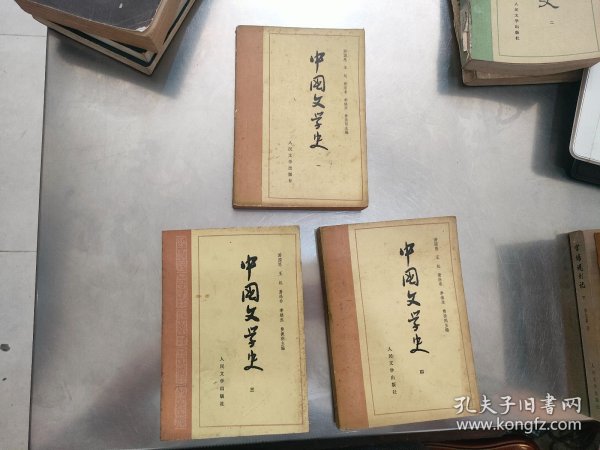 中国文学史
一
游国恩 王起 萧涤非 季镇淮 费振刚主编
人民文学出版社
中国文学史
三
游国恩 王起 萧涤非 季镇淮 费振刚主编
人民文学出版社
中国文学史
四
游国恩 王起 萧涤非 季镇淮 费振刚主编
人民文学出版社
史 二
人民文学出版社
孔夫子旧书网
www.kongfz.com